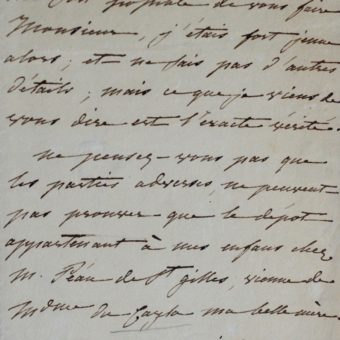 propose de vous faire
Monsieur, j'étais fort jeune
alors; et ne sais pas d'autres
détails; mais ce que je viens de
vous dire est l'exacte vérité.
ne pensez-vous pas que
les parties adverses ne peuvent
pas prouver que le dépôt
appartenant à mes enfans chez
M. Péan de St gilles, vienne de
Mdme du Cayla ma belle mère.